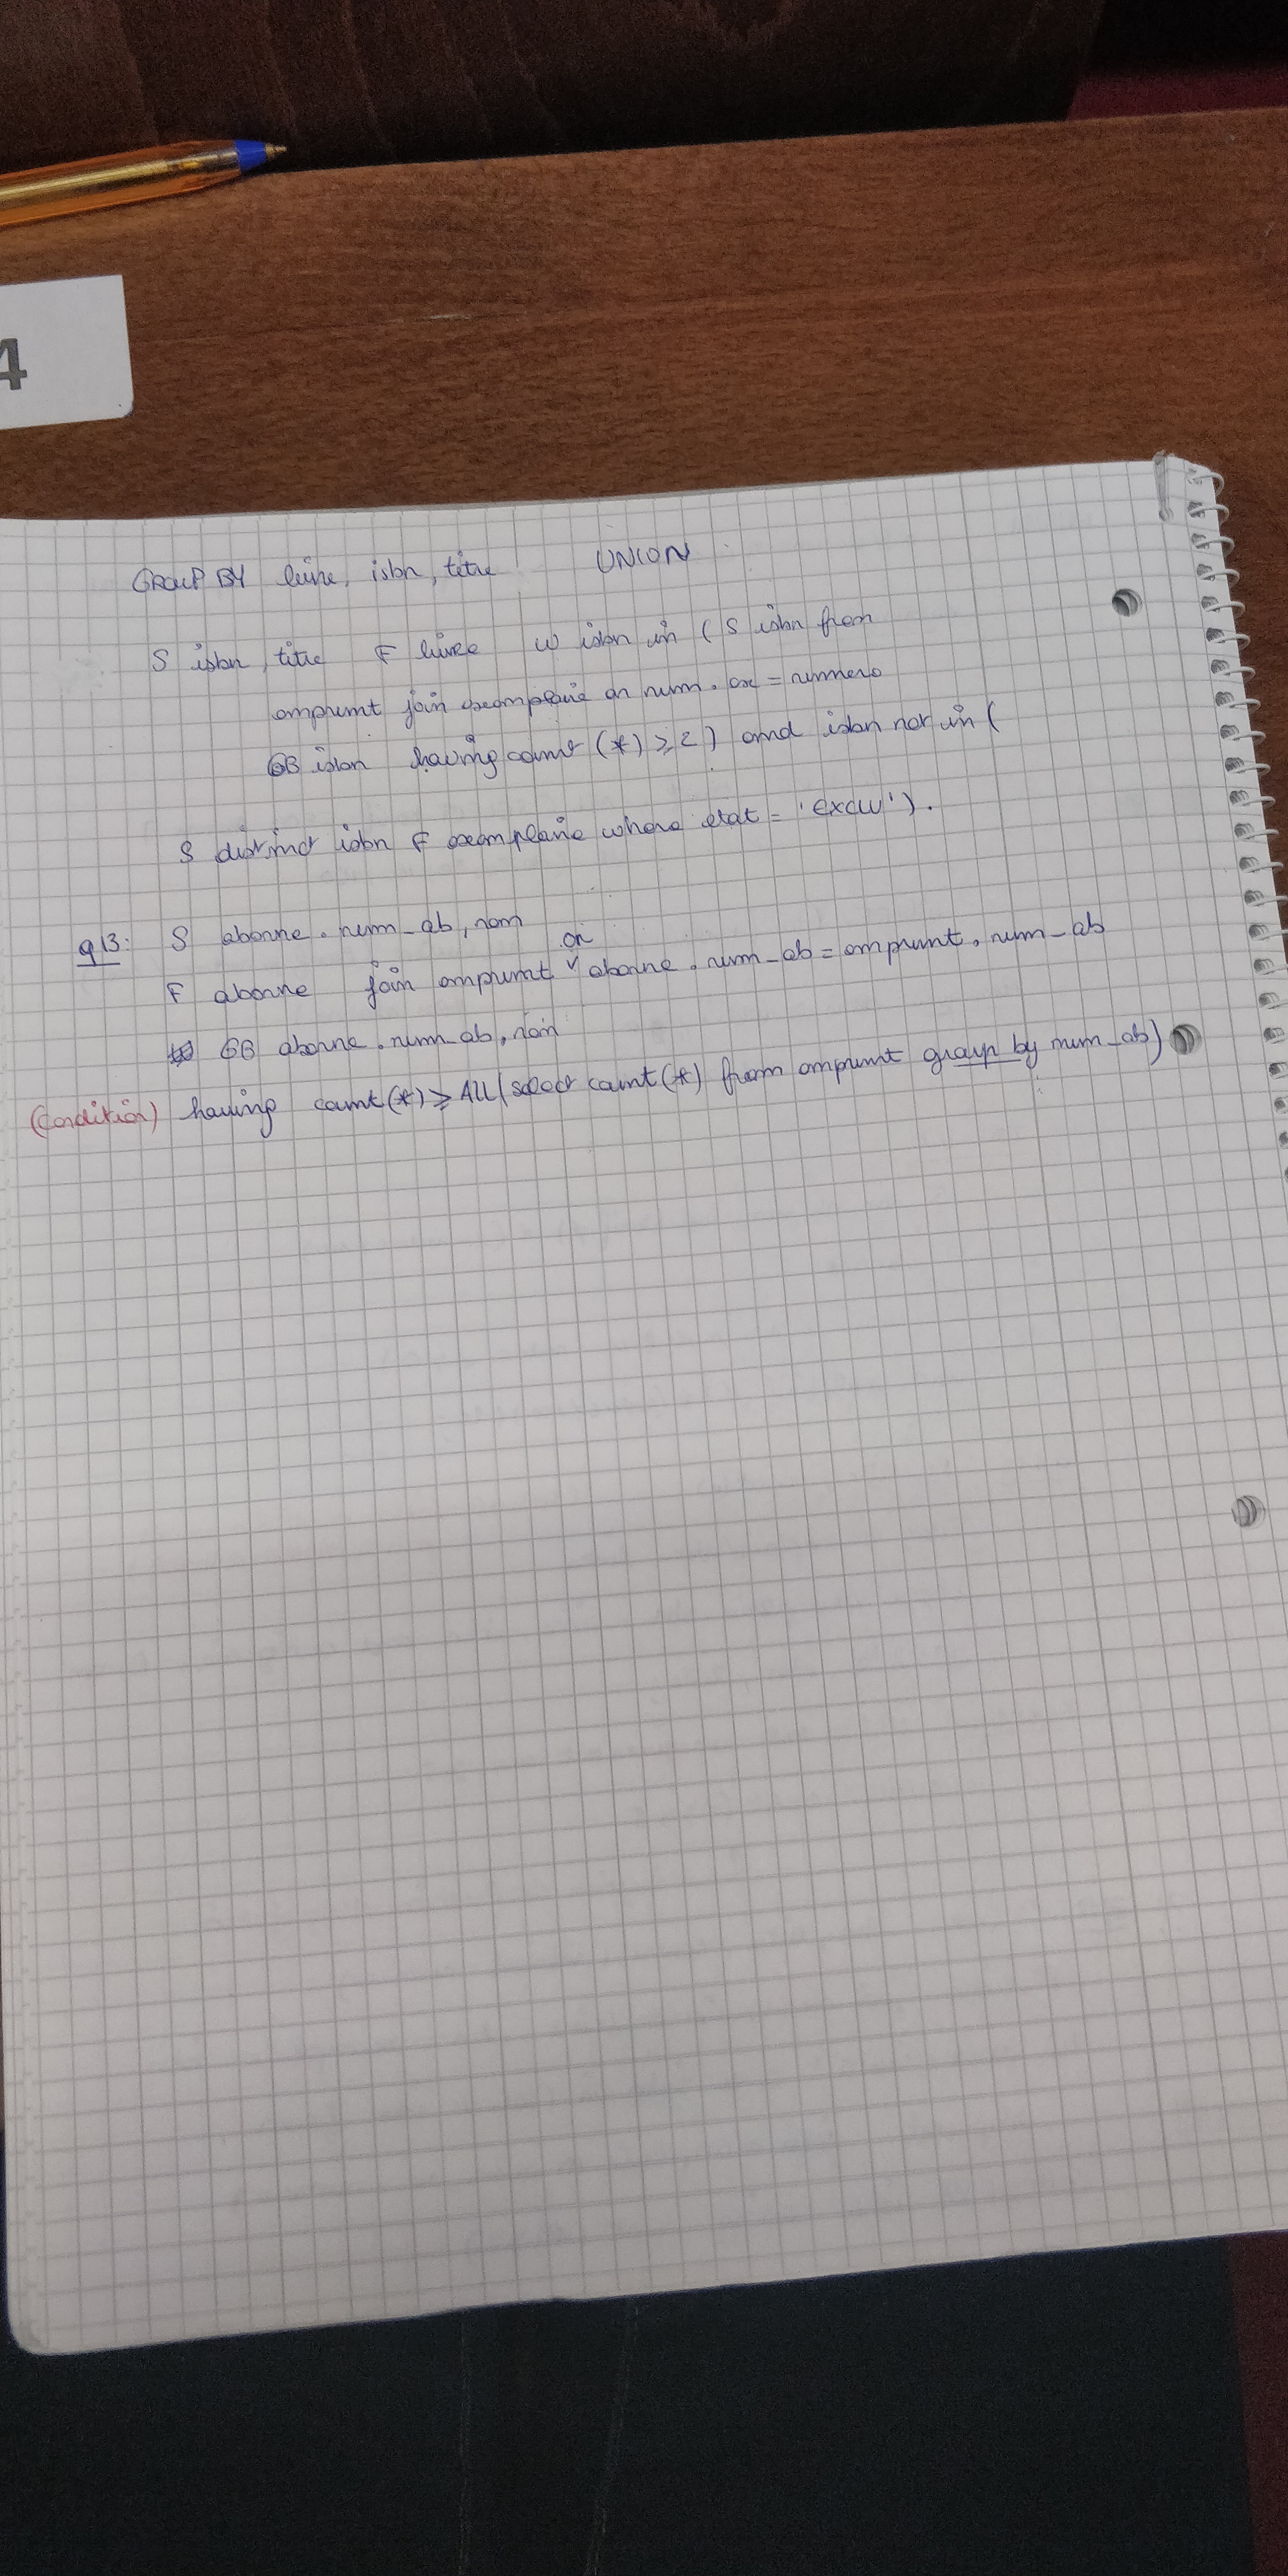 4
GROUP BY livre, isbn, titre UNION
S isbn, titre F livre W isbn in ( S isbn from
emprunt join exemplaire on num_ex = numero
GB isbn having count (*) >= 2 ) and isbn not in (
S distinct isbn F exemplaire where etat = 'EXCLU').
q13: S abonne.num_ab, nom
F abonne join emprunt on abonne.num_ab = emprunt.num_ab
GB abonne.num_ab, nom
(condition) having count(*) ≥ ALL (select count(*) from emprunt group by num_ab)